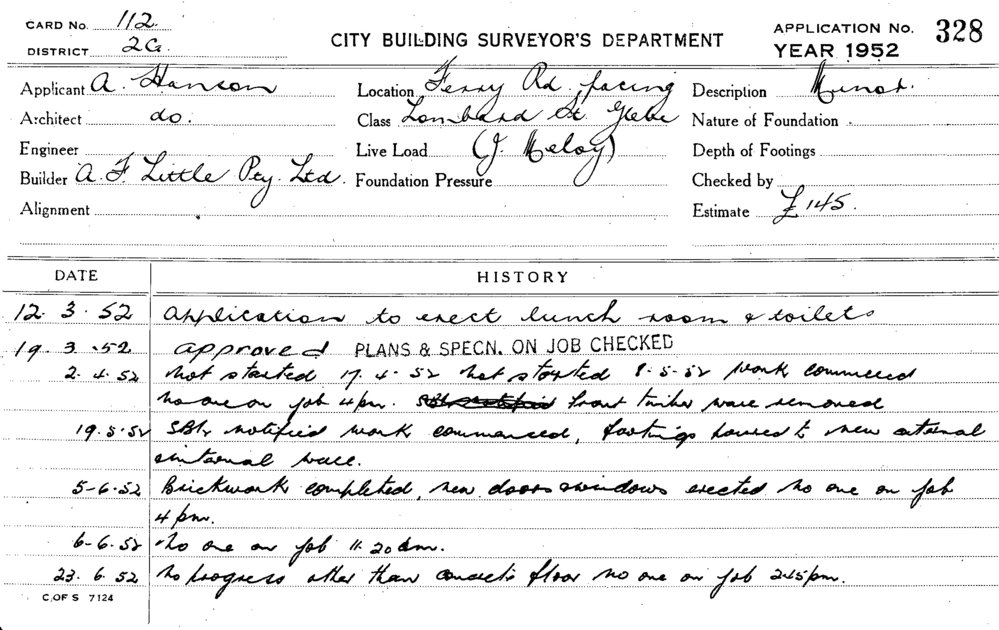 CARD No. 112.
DISTRICT 2G.
CITY BUILDING SURVEYOR'S DEPARTMENT
APPLICATION No. 328
YEAR 1952
Applicant A. Hanson Location Ferry Rd. facing Description
Architect do. Class Lombard St. Glebe Nature of Foundation
Engineer Live Load (J. Meloy) Depth of Footings
Builder A. F. Little Pty. Ltd. Foundation Pressure Checked by
Alignment Estimate £145.
DATE HISTORY
12. 3. 52 Application to erect lunch room & toilets
19. 3. 52 approved PLANS & SPECN. ON JOB CHECKED
2. 4. 52 Not started 17. 4. 52 Not started 8. 5. 52 Work commenced
No one on job 4 pm. front timber removed
19. 5. 52 notified work commenced, footings poured to new external
internal
5-6.52 Brickwork completed, new doors windows erected No one on job
4 pm.
6-6.52 No one on job 11.20 am.
23. 6. 52 No progress other than concrete floor no one on job 2.15 pm.
C. OF S 7124